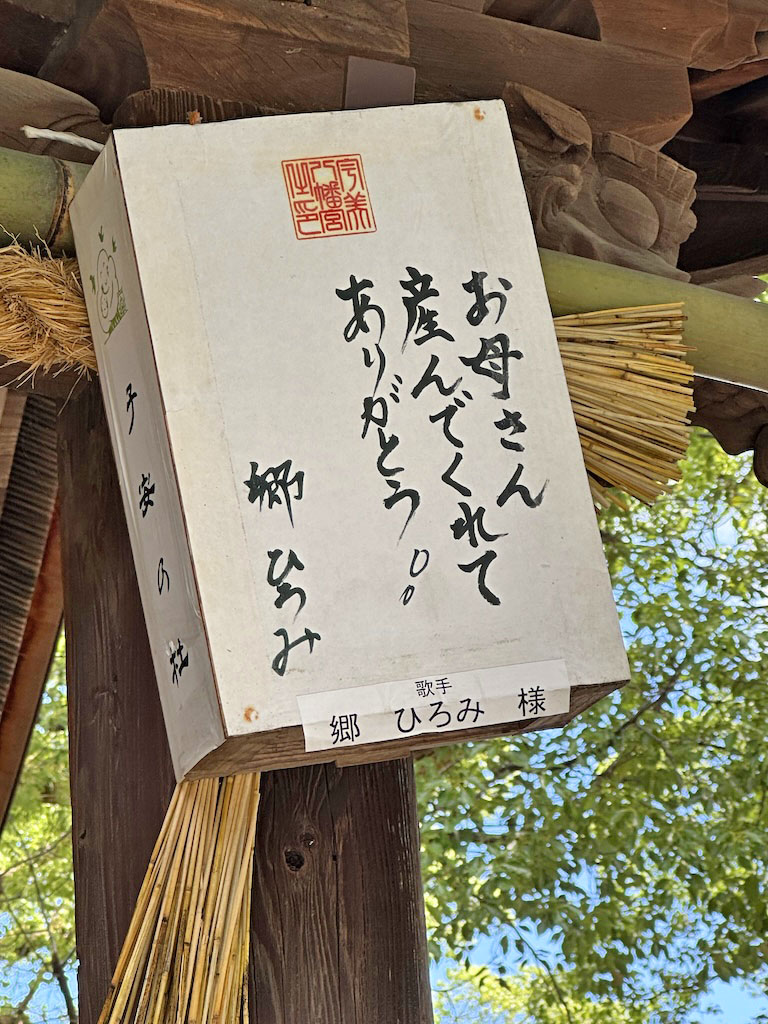 宇美
八幡宮
之印
お母さん
産んでくれて
ありがとう。。
郷ひろみ
子安の杜
歌手
郷 ひろみ 様